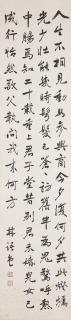 人生不相見動如參與商今夕復何夕共此燈燭
光少壯能幾時鬢髮各已蒼訪舊半為鬼驚呼熱
中腸焉知二十載重上君子堂昔別君未婚兒女忽
成行怡然敬父執問我來何方 林語堂